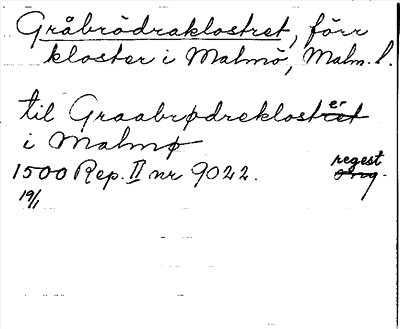 Gråbrödraklostret, förr
kloster i Malmö, Malm. l.
til Graabrødreklostret er
i Malmø
1500 Rep. II nr 9022. regest
19/1 orig.